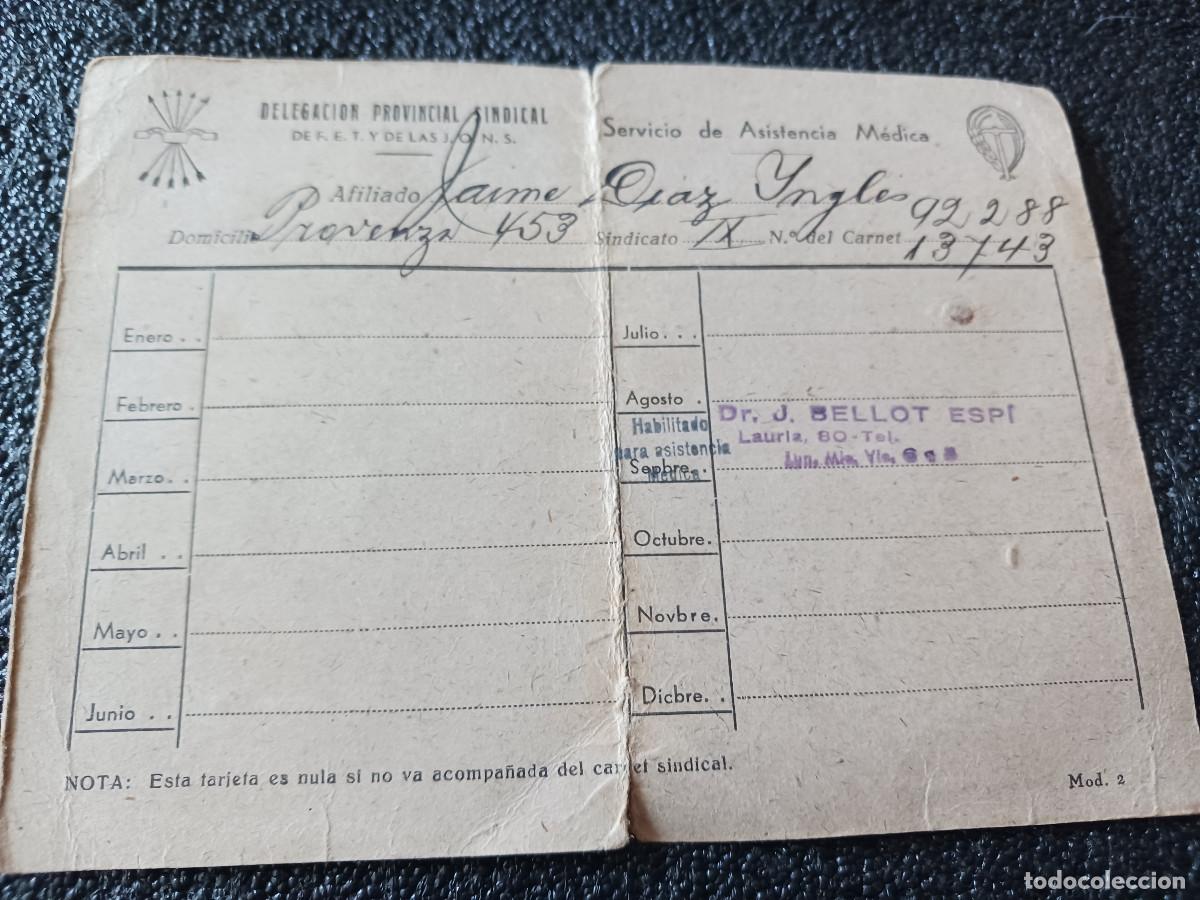 DELEGACION PROVINCIAL SINDICAL
DE F. E. T. Y DE LAS J. O. N. S.
Servicio de Asistencia Médica
Afiliado Jaime Diaz Ynglés 92288
Domicilio Provenza 453 Sindicato IX N.º del Carnet 13743
Enero . .
Febrero .
Marzo. .
Abril . .
Mayo . .
Junio . .
Julio . . .
Agosto .
Habilitado
para asistencia
Médica
Sepbre. .
Dr. J. BELLOT ESPÍ
Lauria, 80 - Tel.
Lun. Mie. Vie. 6 a 8
Octubre.
Novbre.
Dicbre. .
NOTA: Esta tarjeta es nula si no va acompañada del carnet sindical.
Mod. 2
todocoleccion